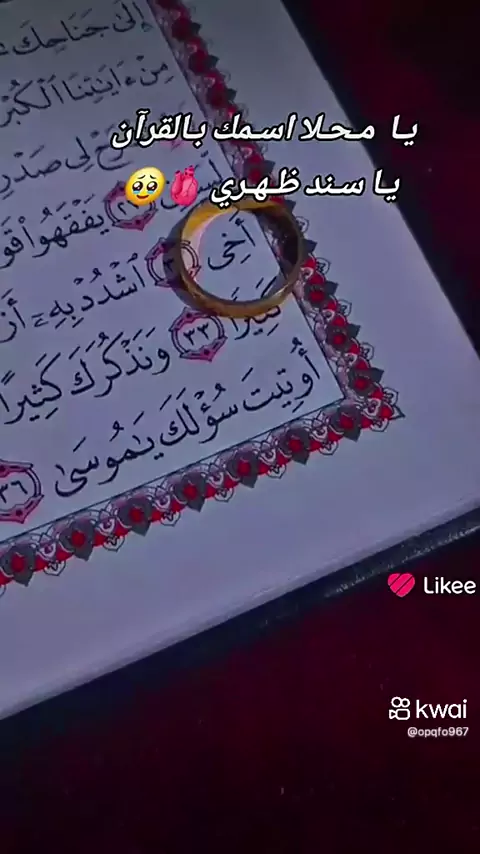 إِلَىٰ جَنَاحِكَ
مِنْ ءَايَٰتِنَا ٱلْكُبْرَ
يا محلا اسمك بالقرآن
رَحْ لِى صَدْرِ
يا سند ظهري 🫀🥹
يَفْقَهُوا۟ قَوْ
أَخِى
ٱشْدُدْ بِهِۦٓ أَزْ
كَثِيرًا ٣٣ وَنَذْكُرَكَ كَثِيرًا
أُوتِيتَ سُؤْلَكَ يَٰمُوسَىٰ ٣٦
Likee
kwai
@opqfo967